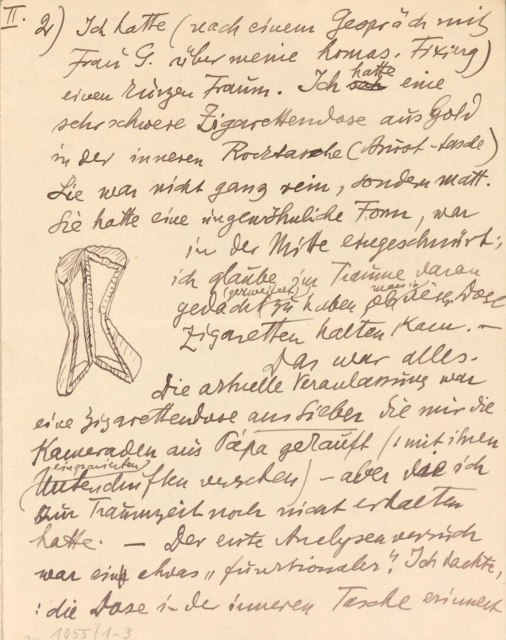 II. 2) Ich hatte (nach einem Gespräch mit
Frau G. über meine homos. Fixirg)
einen kurzen Traum. Ich hatte eine
sehr schwere Zigarettendose aus Gold
in der inneren Rocktasche (Brust-tasche)
Sie war nicht ganz rein, sondern matt.
Sie hatte eine ungewöhnliche Form, war
in der Mitte eingeschnürt;
ich glaube im Traume daran
(gezweifelt)
gedacht zu haben ob man in der Dose
Zigaretten halten kann. —
Das war alles.
Die aktuelle Veranlassung war
eine Zigarettendose aus Silber die mir die
Kameraden aus Pápa gekauft (mit ihren
eingravierten
Unterschriften versehen) — aber die ich
zur Traumzeit noch nicht erhalten
hatte. — Der erste Analysenversuch
war ein etwas „funktionaler". Ich dachte,
: die Dose in der inneren Tasche erinnert
1055/1-3